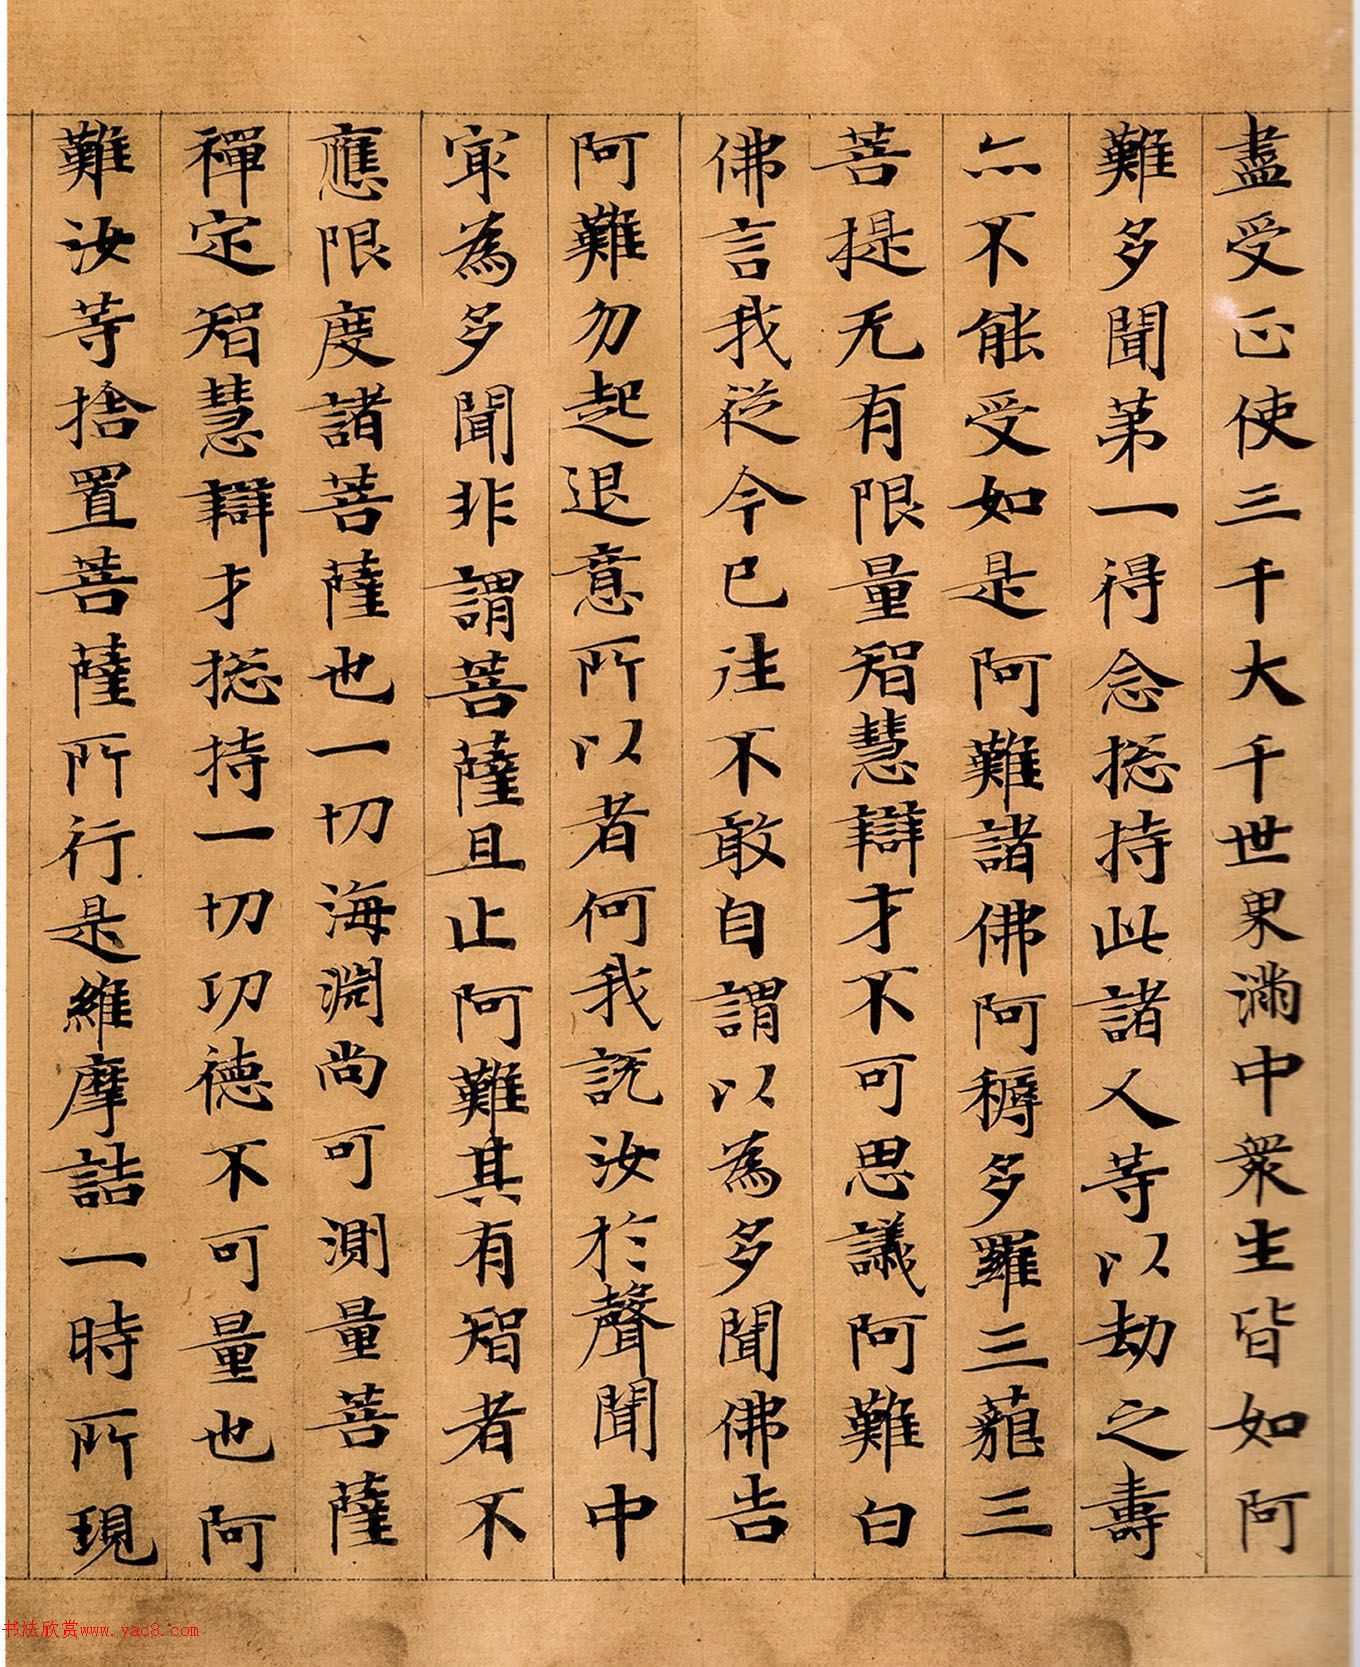 盡受正使三千大千世界滿中衆生皆如阿
難多聞苐一得念捴持此諸人等以劫之壽
亦不能受如是阿難諸佛阿耨多羅三藐三
菩提无有限量智慧辯才不可思議阿難白
佛言我從今已往不敢自謂以為多聞佛告
阿難勿起退意所以者何我說汝於聲聞中
冣為多聞非謂菩薩且止阿難其有智者不
應限度諸菩薩也一切海淵尚可測量菩薩
禪定智慧辯才捴持一切功德不可量也阿
難汝等捨置菩薩所行是維摩詰一時所現
书法欣赏www.yac8.com